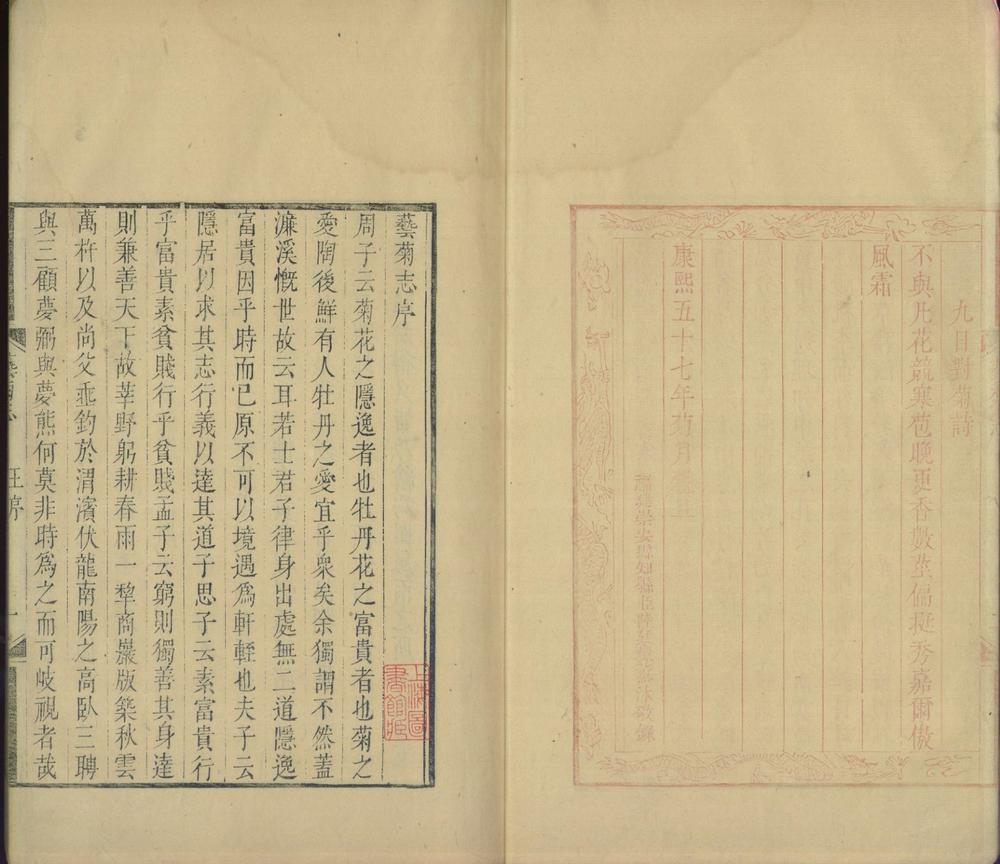 九日對菊詩
不與凡花競寒苞晚更香數莖偏挺秀嘉爾傲
風霜
康熙五十七年菊月
藝菊志序
周子云菊花之隱逸者也牡丹花之富貴者也菊之
愛陶後鮮有人牡丹之愛宜乎衆矣余獨謂不然蓋
濂溪慨世故云耳若士君子律身出處無二道隱逸
富貴因乎時而已原不可以境遇爲軒輊也夫子云
隱居以求其志行義以達其道子思子云素富貴行
乎富貴素貧賤行乎貧賤孟子云窮則獨善其身達
則兼善天下故莘野躬耕春雨一犂商巖版築秋雲
萬杵以及尚父垂釣於渭濱伏龍南陽之高臥三聘
與三顧夢弼與夢熊何莫非時爲之而可岐視者哉
藝菊志
汪序
一
上海圖
書館藏